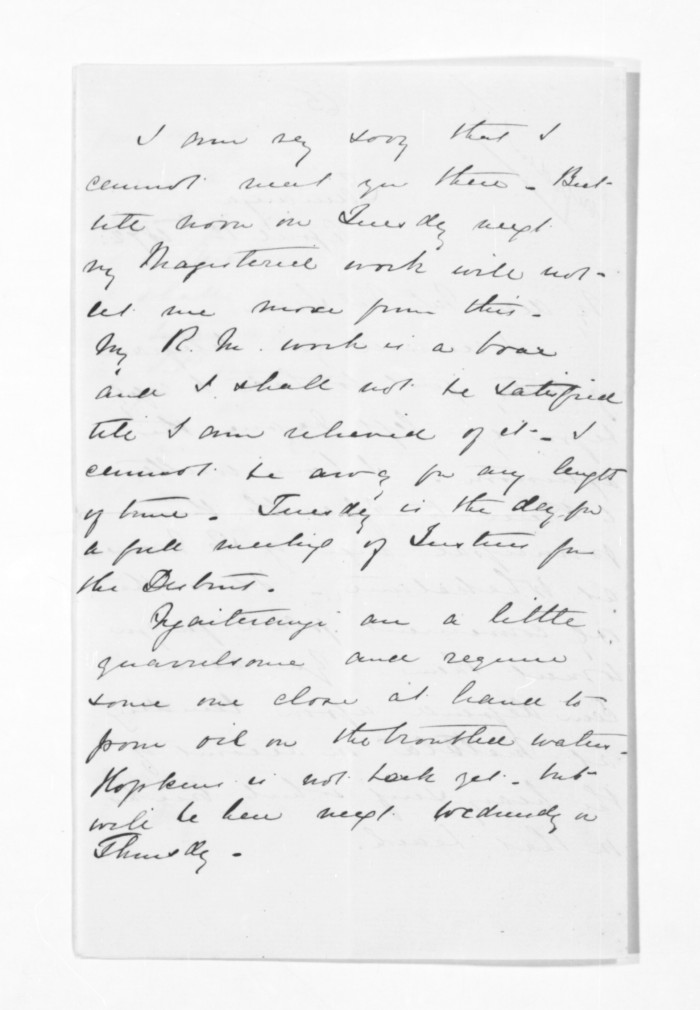 I am very sorry that I
cannot meet you there - But
till noon on Tuesday next
my Magisterial work will not
let me move from this -
My R. M. work is a bore
and I shall not be satisfied
till I am relieved of it - I
cannot be away for any length
of time - Tuesday is the day for
a full meeting of Justices for
the District.
Ngaiterangi are a little
quarrelsome and require
some one close at hand to
pour oil on the troubled waters -
Hopkins is not back yet - but
will be here next Wednesday or
Thursday -